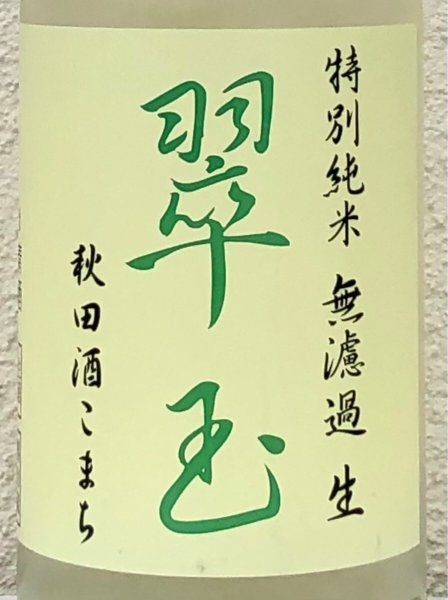 特別純米 無濾過 生
翠玉
秋田酒こまち